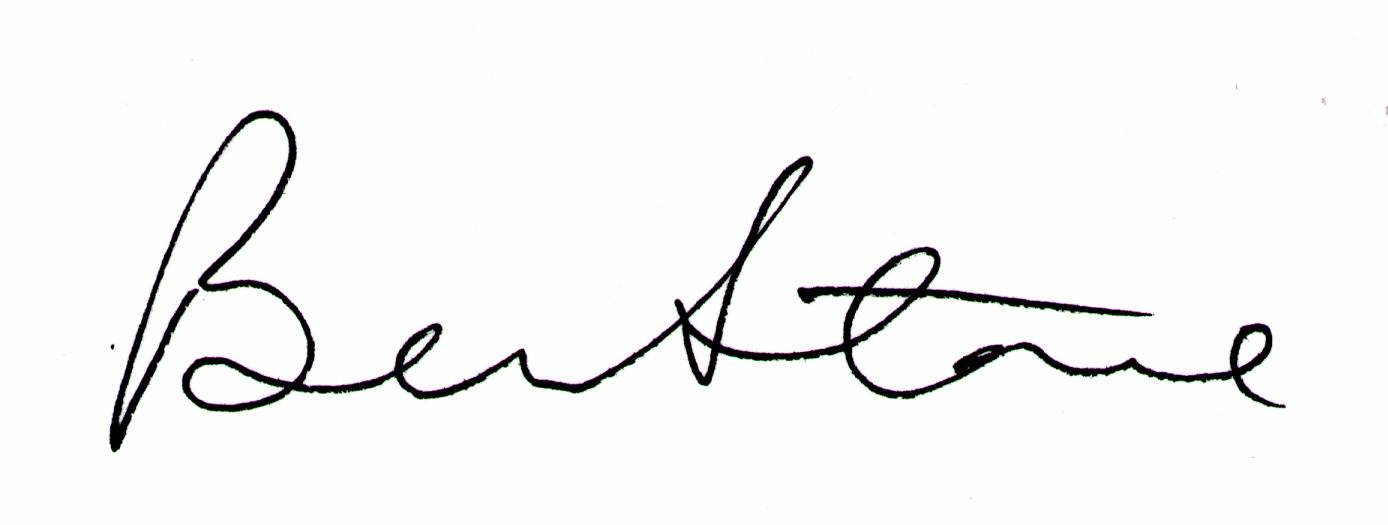 Ben Stone